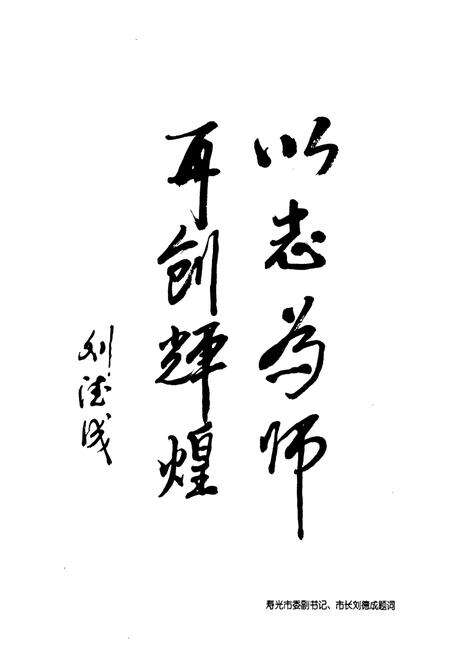 以志为师
再创辉煌
刘德成
寿光市委副书记、市长刘德成题词